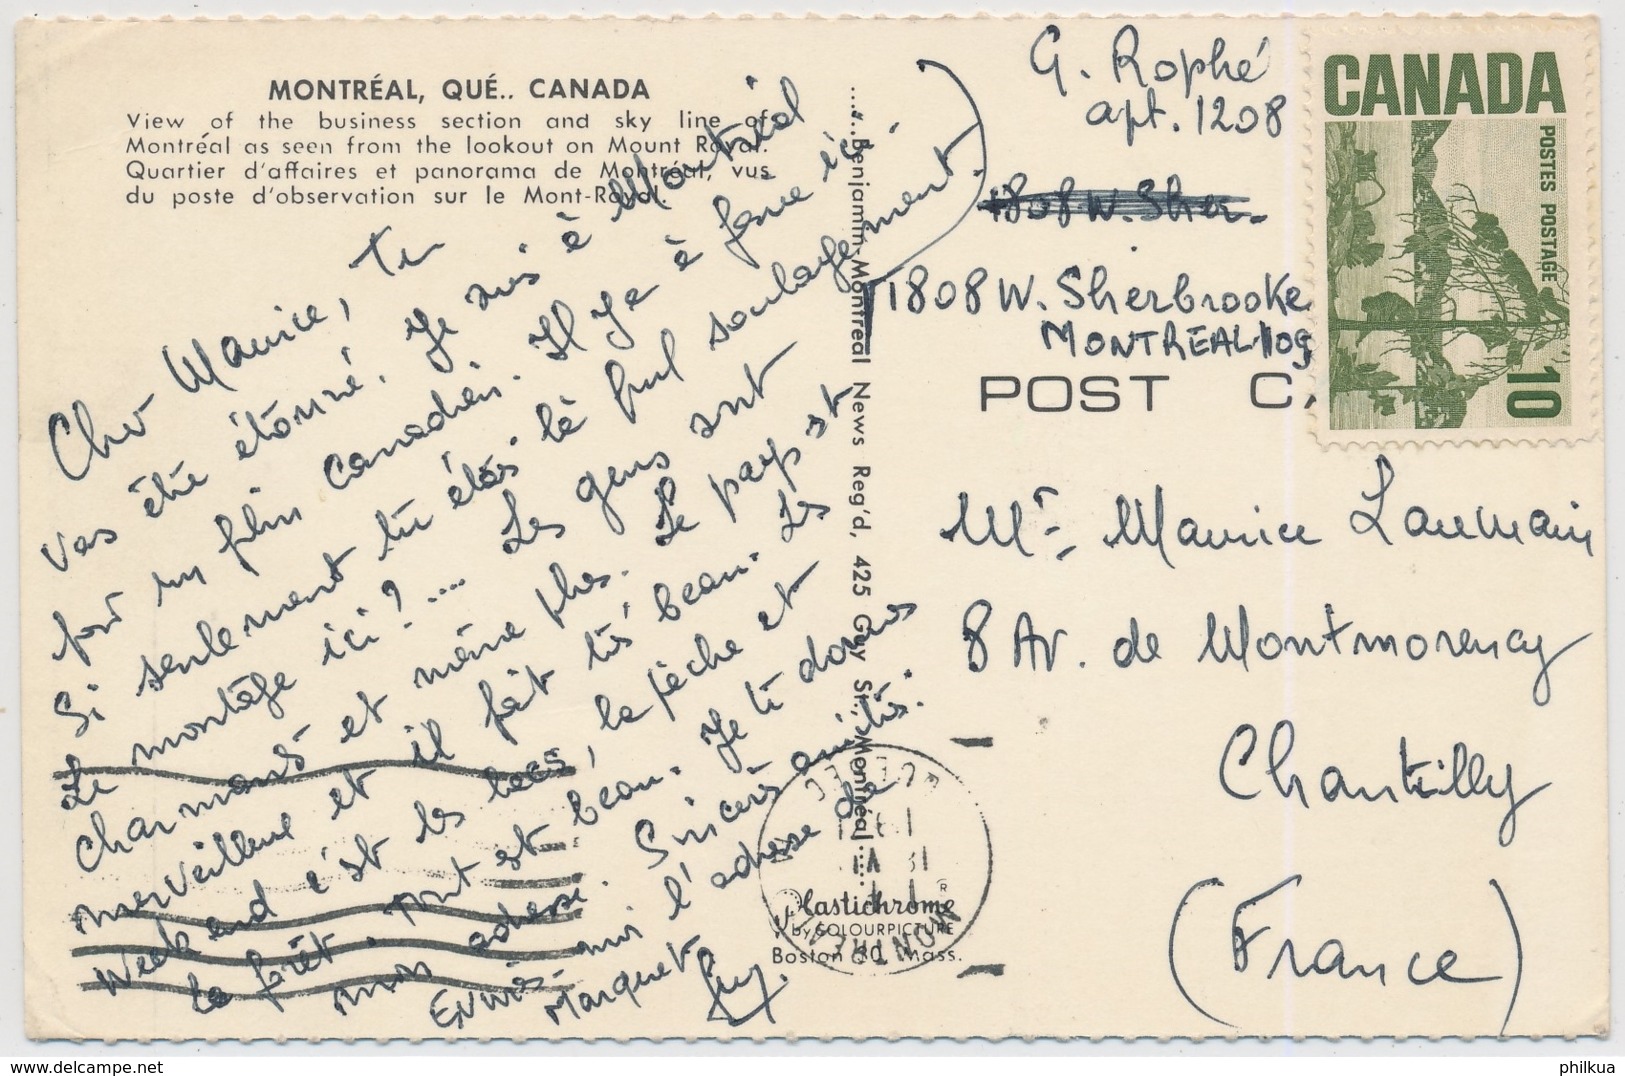 MONTRÉAL, QUÉ.. CANADA
View of the business section and sky line of
Montréal as seen from the lookout on Mount Royal.
Quartier d'affaires et panorama de Montréal, vus
du poste d'observation sur le Mont-Royal.
Cher Maurice, tu
vas être étonné. Je suis à Montréal
pour un film canadien. Il y a à faire ici.
Si seulement tu étais là (quel soulagement.)
Le montage ici ? .... Les gens sont
charmants et même plus. Le pays est
merveilleux et il fait très beau. Les
Week end c'est les lacs, la pêche et
la forêt. Tout est beau. Je te donne
mon adresse. Sincères amitiés.
Envoie-moi l'adresse de
Marquet
Guy.
....Benjamin-Montreal News Reg'd, 425 Guy St., Montréal....
Plastichrome®
by COLOURPICTURE
Boston 30, Mass.
MONTREAL
G. Rophé
apt. 1208
1808 W. Sher-
1808 W. Sherbrooke
MONTREAL 109
POST CA
CANADA
POSTES POSTAGE
10
Mr Maurice Laumain
8 Av. de Montmorency
Chantilly
(France)
philkua.com